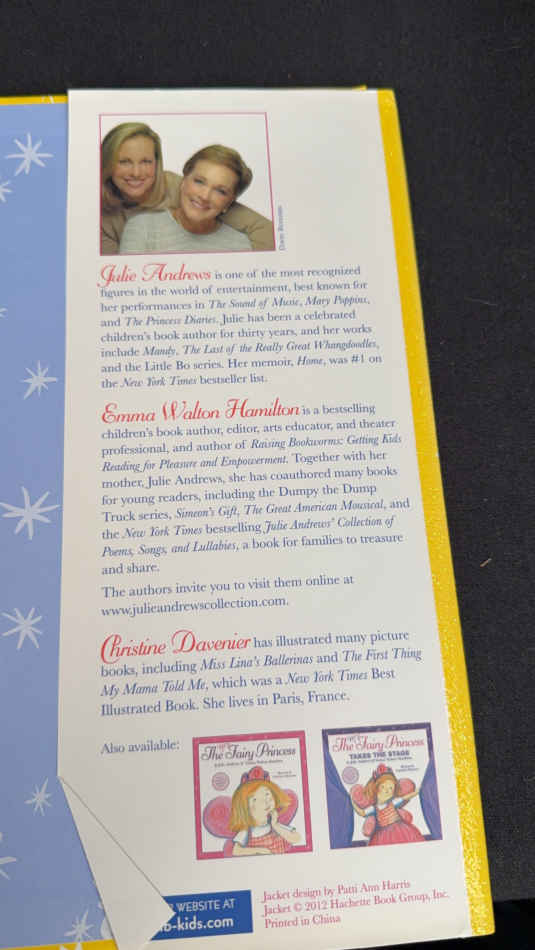 Julie Andrews is one of the most recognized
figures in the world of entertainment, best known for
her performances in The Sound of Music, Mary Poppins,
and The Princess Diaries. Julie has been a celebrated
children's book author for thirty years, and her works
include Mandy, The Last of the Really Great Whangdoodles,
and the Little Bo series. Her memoir, Home, was #1 on
the New York Times bestseller list.
Emma Walton Hamilton is a bestselling
children's book author, editor, arts educator, and theater
professional, and author of Raising Bookworms: Getting Kids
Reading for Pleasure and Empowerment. Together with her
mother, Julie Andrews, she has coauthored many books
for young readers, including the Dumpy the Dump
Truck series, Simeon's Gift, The Great American Mousical, and
the New York Times bestselling Julie Andrews' Collection of
Poems, Songs, and Lullabies, a book for families to treasure
and share.
The authors invite you to visit them online at
www.julieandrewscollection.com.
Christine Davenier has illustrated many picture
books, including Miss Lina's Ballerinas and The First Thing
My Mama Told Me, which was a New York Times Best
Illustrated Book. She lives in Paris, France.
Also available:
The Fairy Princess
The Fairy Princess
TAKES THE STAGE
WEBSITE AT
b-kids.com
Jacket design by Patti Ann Harris
Jacket © 2012 Hachette Book Group, Inc.
Printed in China